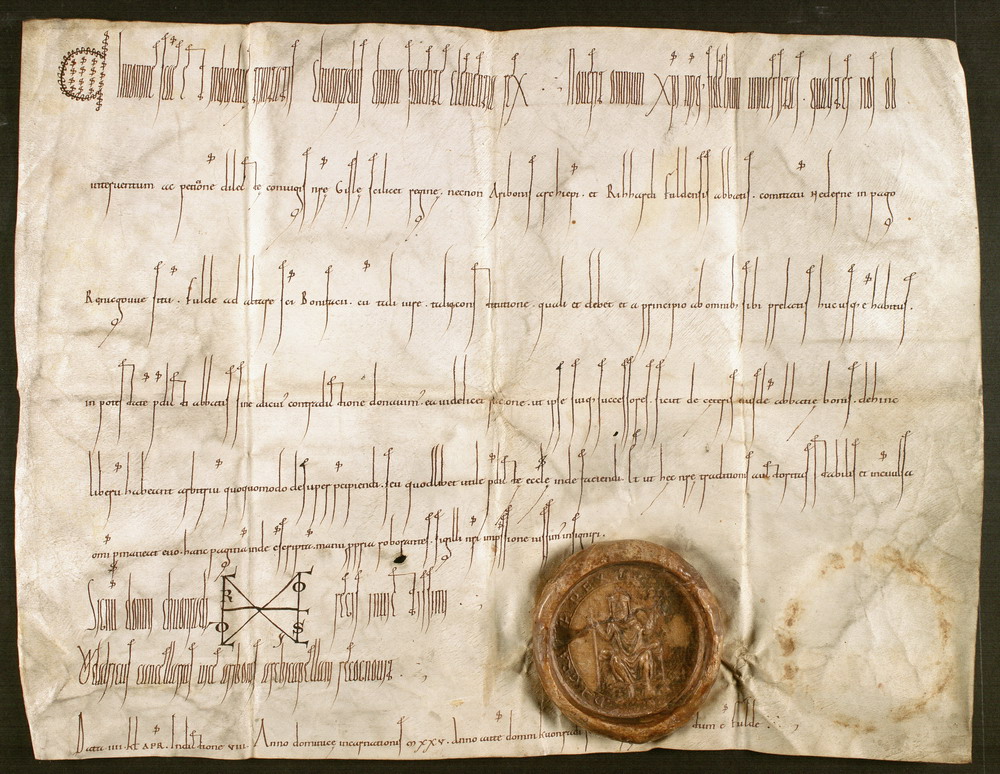 In nomine scae & individuae trinitatis Chuonradus divina favente clementia rex. Noverit omnium xpi nrisq; fidelium universitas. qualiter nos ob
interventum ac petitione dilectę coniugis nrę Gislę scilicet reginę. necnon Aribonis archiepi. et Rihhardi fuldensis abbatis. comitatu Nederne in pago
situ. fulde ad altare sci Bonifacii. eo tali iure. taliq; constitutione. quali et debet et a principio ab omnib; sibi prelatis hucusq; e habitus.
in potestate pdicti abbatis sine alicui contradictione donavim'. ea videlicet ratione. ut ipse suiq; successores. sicut de ceteris eiusde abbatie bonis. dehinc
liberu habeant arbitriu quoquomodo desuper precipiendi. seu quodlibet utile pdictę ecclę inde faciendi. Et ut hec nrę traditionis auctoritas stabilis et inconvulsa
omi pmaneat evo. hanc pagina inde cscripta. manu ppria roborantes. sigilli nri impssione iussim' insigniri.
Signu domni chuonradi regis invictissimi
Udalricus cancellarius vice aribonis archicapellani recognovit.
Data IIII. kl. APR. Indictione VIII. Anno dominice incarnationis MXXV. Anno aute domni kuonradi